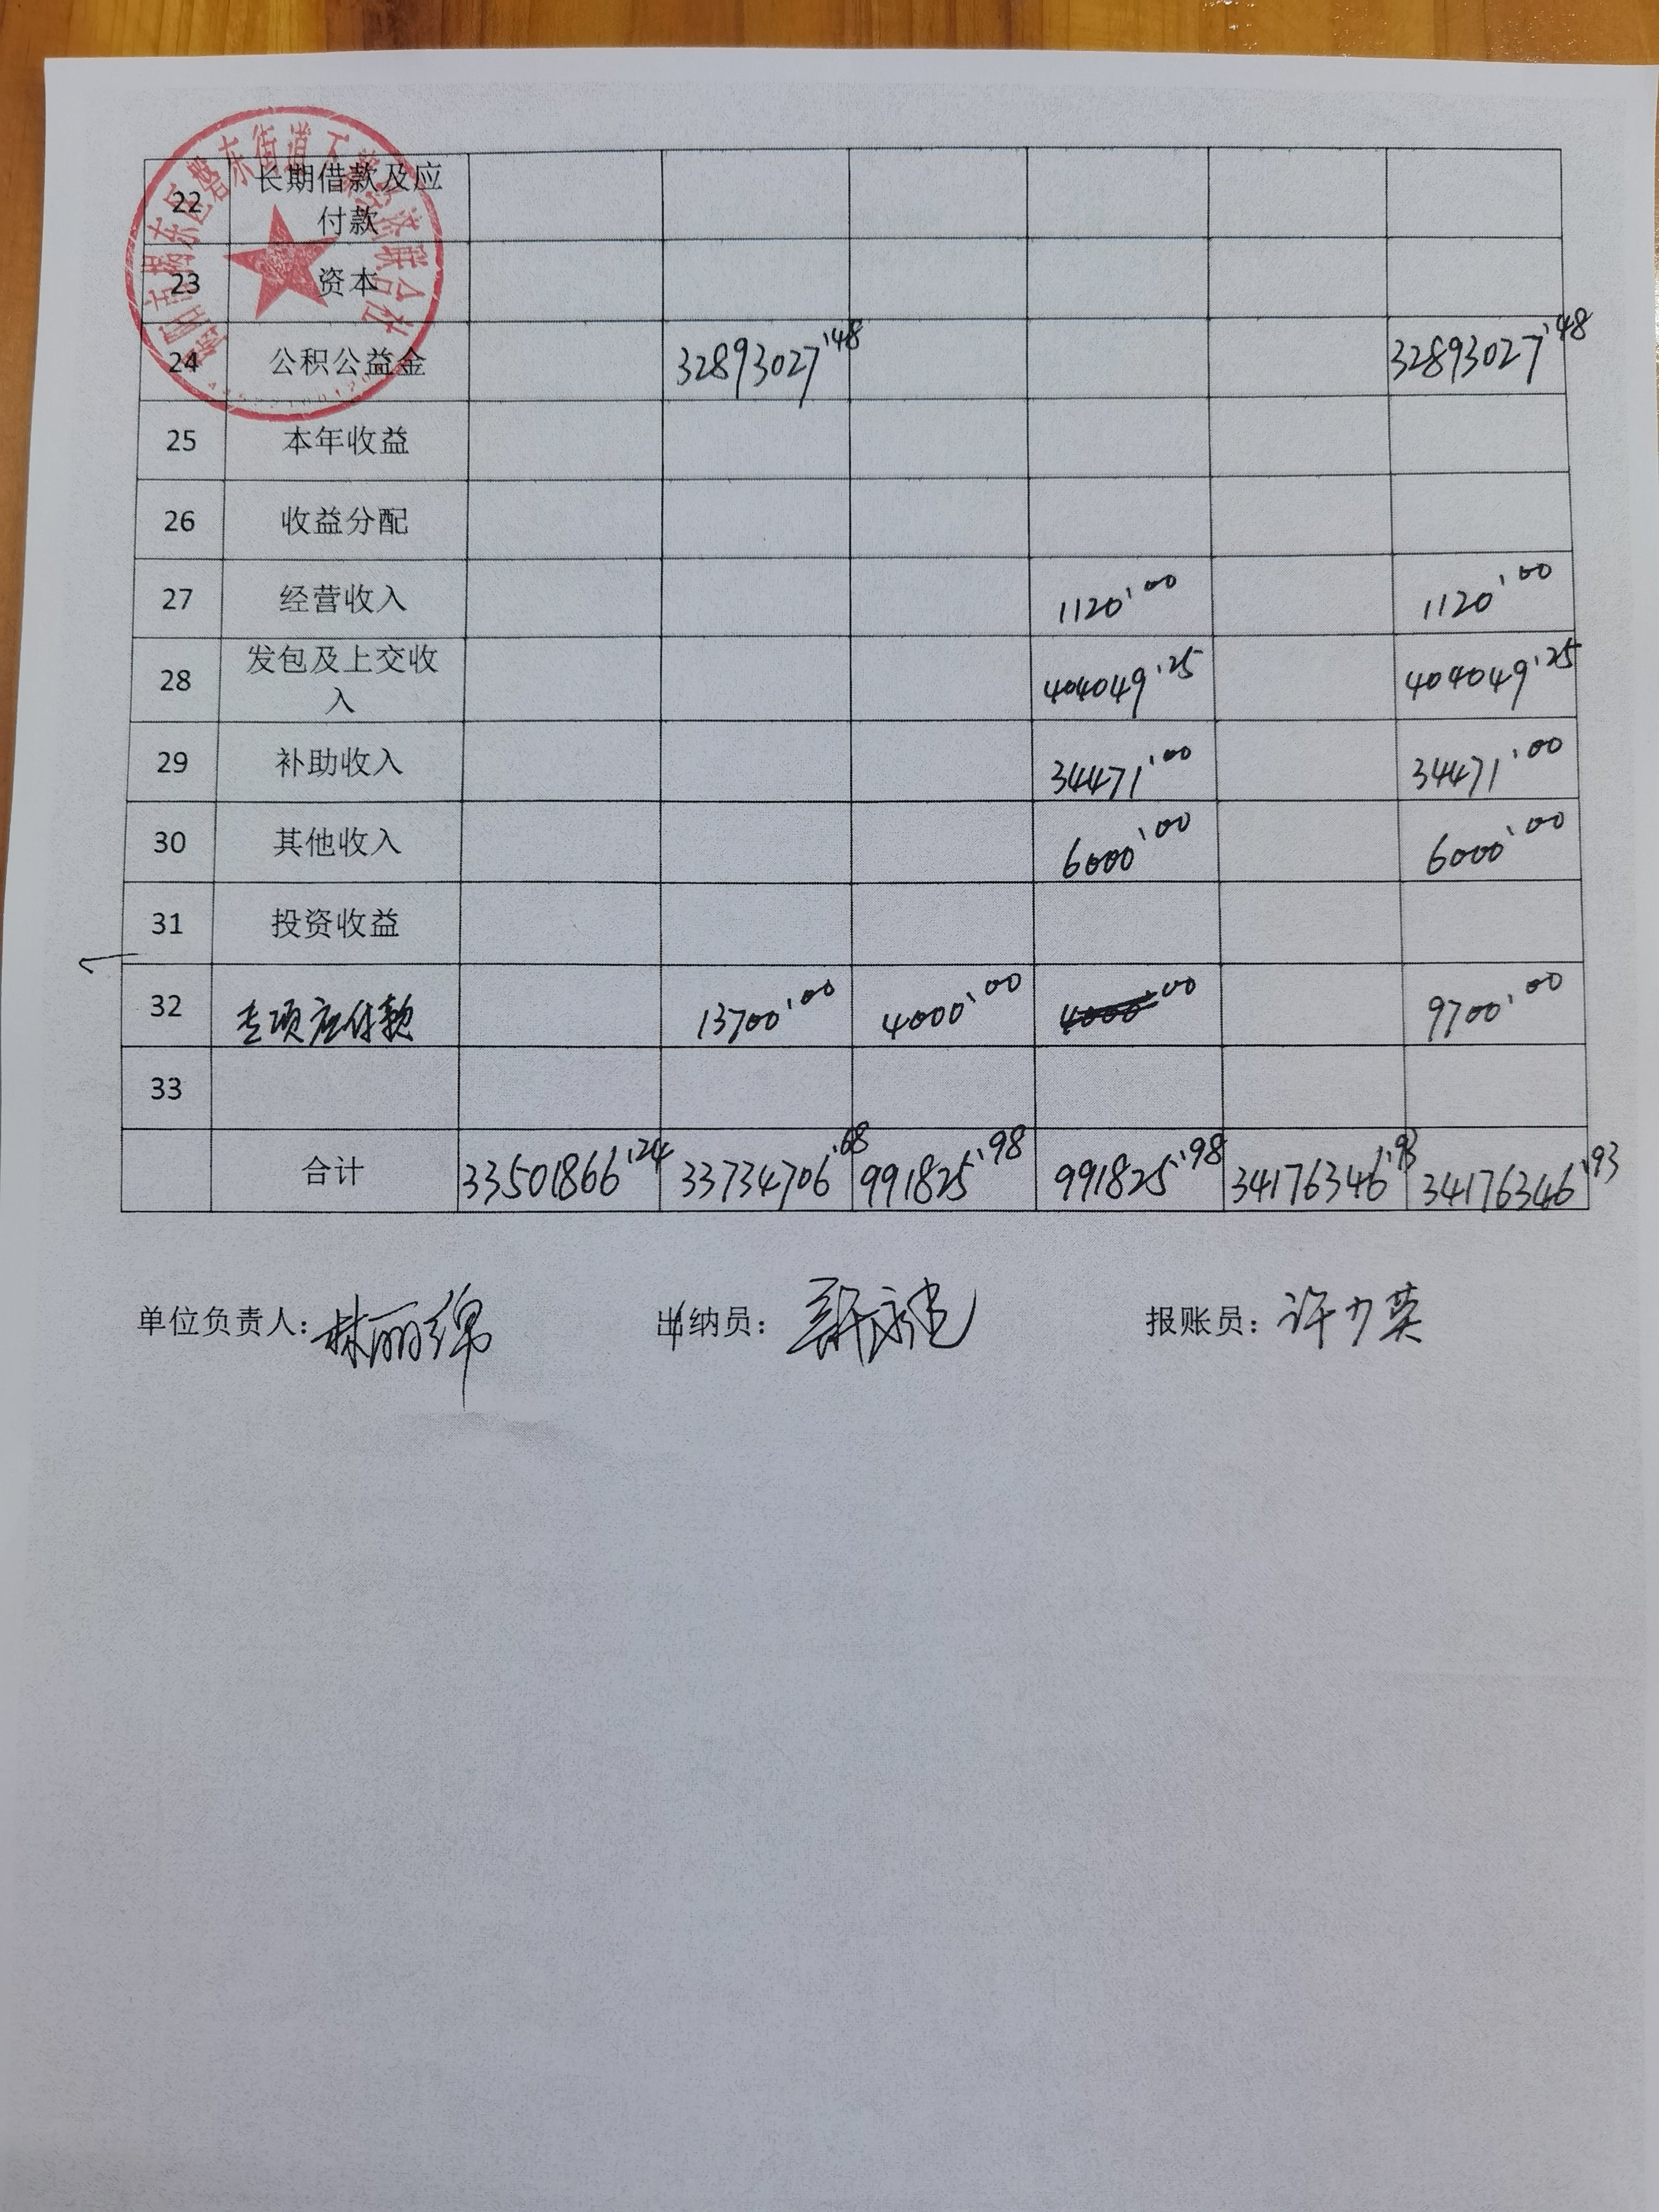 22 长期借款及应
付款
23 资本
24 公积公益金 32893027.48 32893027.48
25 本年收益
26 收益分配
27 经营收入 1120.00 1120.00
28 发包及上交收
入 404049.25 404049.25
29 补助收入 34471.00 34471.00
30 其他收入 6000.00 6000.00
31 投资收益
32 专项应付款 13700.00 4000.00 4000.00 9700.00
33
合计 33501866.24 33734706.68 991825.98 991825.98 34176346.93 34176346.93
单位负责人：林丽绵 出纳员： 报账员：许少英